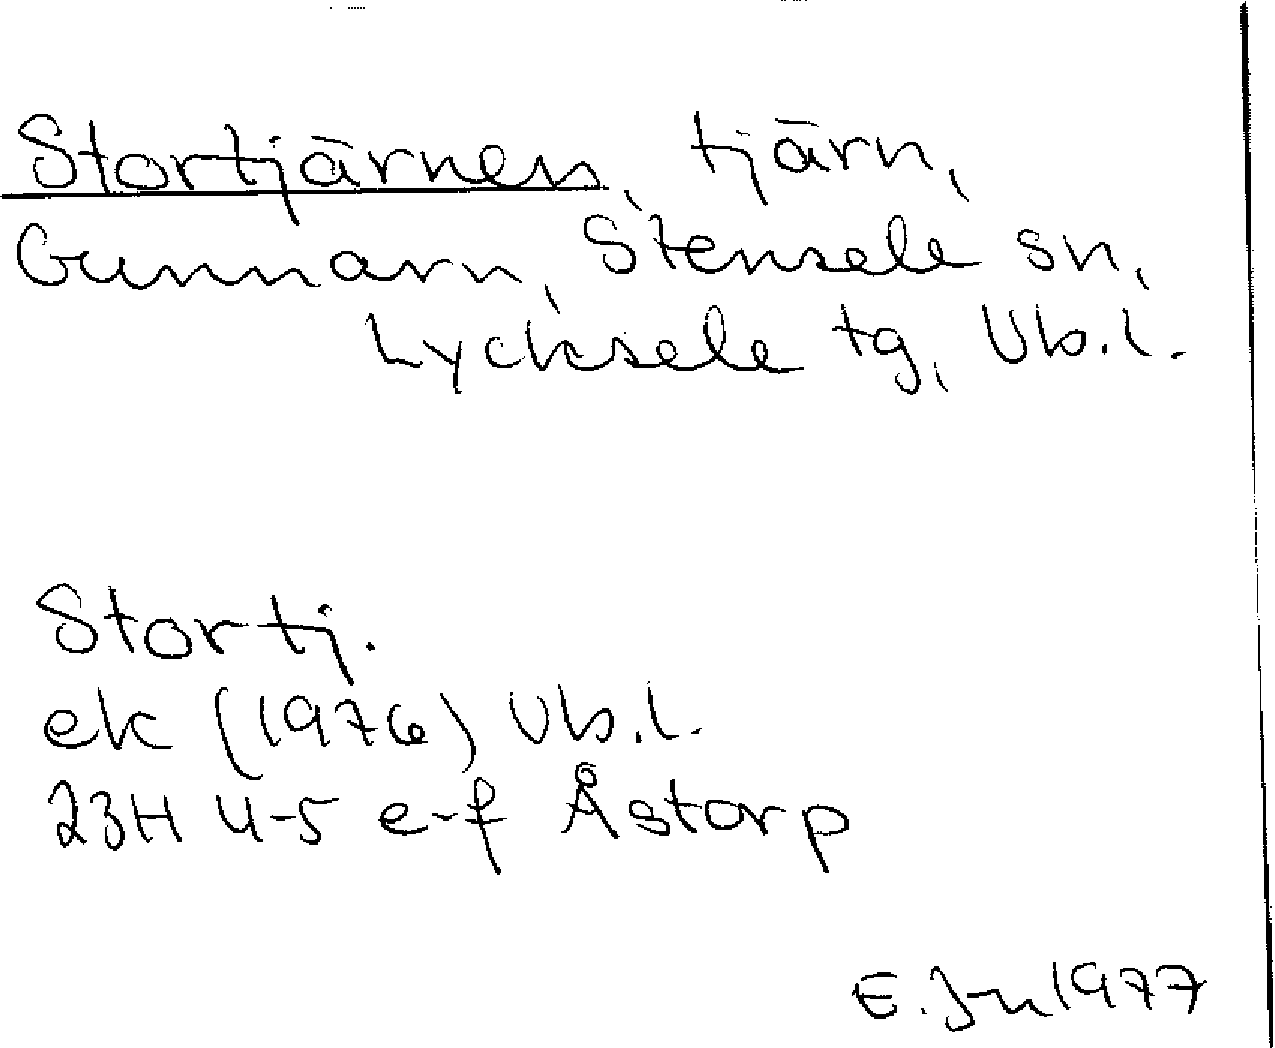 Stortjärnen, tjärn,
Gunnarn, Stensele sn,
Lycksele tg, Vb.l.
Stortj.
ek (1976) Vb.l.
23H 4-5 e-f Åstorp
E. 1977